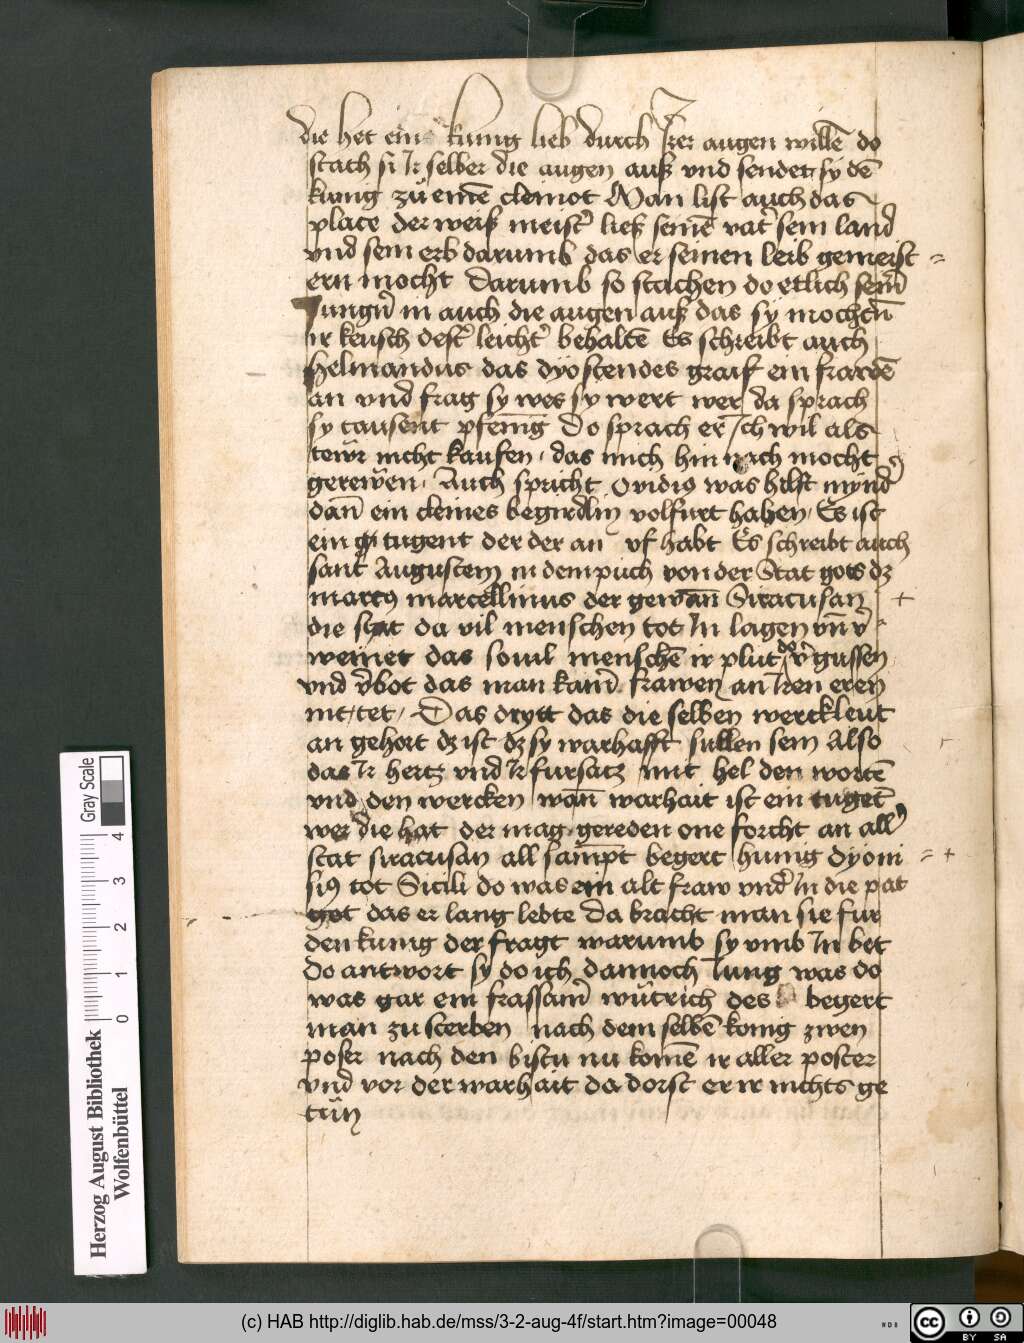 die het eins kunig lieb durch Irer augen willē do
stach si Ir selber die augen auß vnd sendet sy dē
kunig zů einē cleinot Man list auch das
place der weiß meistˀ ließ seinē vatˀ sein land
vnd sein erb darumb das er seinen leib gemeist =
ern mocht Darumb so stachen do etlich seinˀ
Jungnˀ in auch die augen auß das sy mochtn̄
ir keusch destˀ leichtˀ behaltē Es schreibt auch
helmandus das dyostendes graif ein frawē
an vnd frag sy wes sy wert wer da sprach
sy tausent pfenīg Do sprach er Ich wil als
tewr nicht kaufen das mich hin nach mocht
gerewen. Auch spricht Ouidiꝰ was hilft myndˀ
dan̄ ein cleines begirdlin volfurt haben Es ist
ein tugent der der an vf habt Es schreibt auch
sant Augustein in dem puch von der Stat gots dz
marcꝰ marcellinus der gewan̄ Siracusan +
die stat da vil menschen tot In lagen vn̄ vˀ
weinet das souil menschē ir plut do vˀgussen
vnd vˀbot das man kainˀ frawen an Iren eren
nit tet Das drytt das die selben werckleut
an gehort dz ist dz sy warhafft sullen sein Also
das Ir hertz vnd Ir fursatz mit hel den wortē
vnd den wercken wan̄ warhait ist ein tugēt
wer die hat der mag gereden one forcht an allˀ
stat siracusan all sampt begert hunig dyoni = +
siꝰ tot Sicili do was ein alt fraw vndˀ In die pat
got das er lang lebte Da bracht man sie fur
den kunig der fragt warumb sy vmb In bet
Do antwort sy do ich dannoch Iung was do
was gar ein frassamˀ wůtrich des begert
man zu sterben nach dem selbē konig zwen
poser nach den bistu nu komē ir aller poster
vnd vor der warhait da dorst er ir nichts ge
tůn
Gray Scale
0 1 2 3 4
Herzog August Bibliothek
Wolfenbüttel
(c) HAB http://diglib.hab.de/mss/3-2-aug-4f/start.htm?image=00048
WDB
cc BY SA